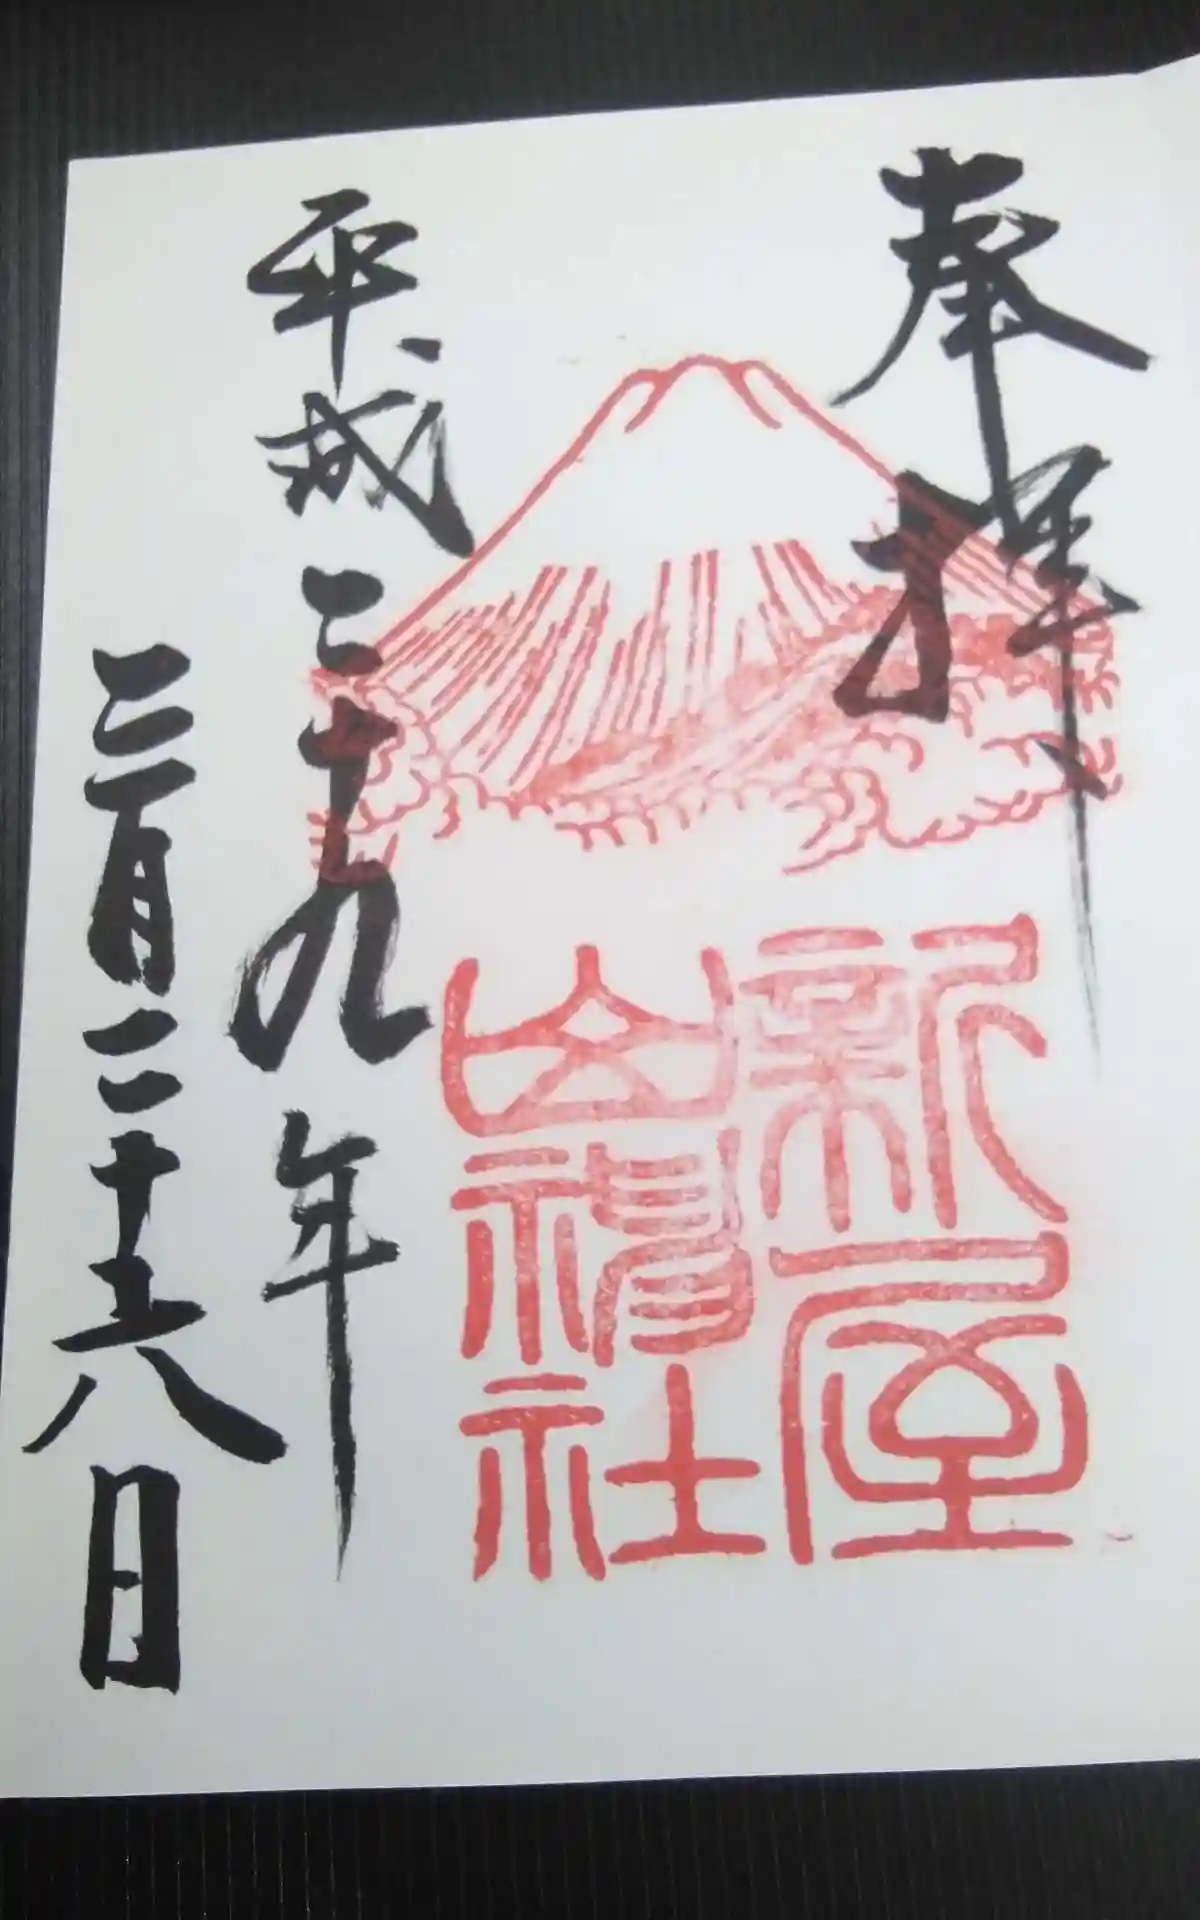 奉拝
新屋
山神社
平成二十九年
三月二十六日